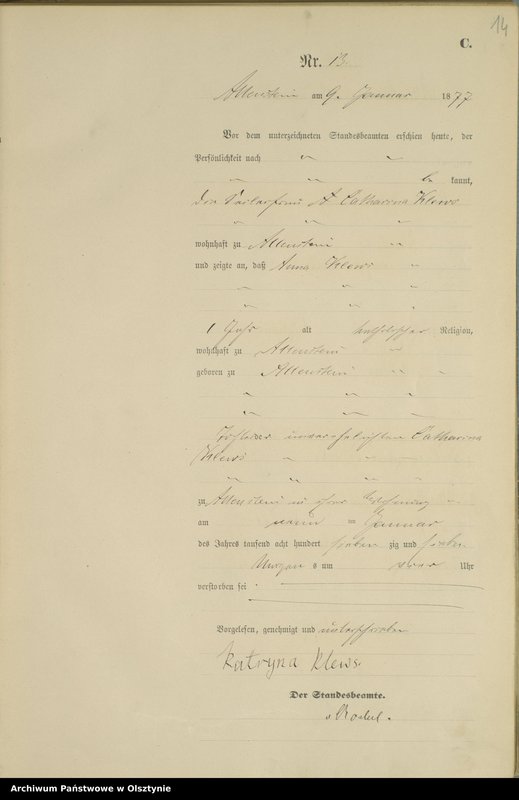 14
C.
Nr. 13.
Allenstein am 9. Januar 1877
Vor dem unterzeichneten Standesbeamten erschien heute, der
Persönlichkeit nach
be kannt,
die Catharina Klews
wohnhaft zu Allenstein
und zeigte an, daß Anna Klews
1 Jahr alt katholischer Religion,
wohnhaft zu Allenstein
geboren zu Allenstein
Tochter der unverehelichten Catharina
Klews
zu Allenstein in ihrer Wohnung
am neun ten Januar
des Jahres tausend acht hundert sieben zig und sieben
Morgen s um vier Uhr
verstorben sei
Vorgelesen, genehmigt und unterschrieben
Katryna Klews.
Der Standesbeamte.
Archiwum Państwowe w Olsztynie